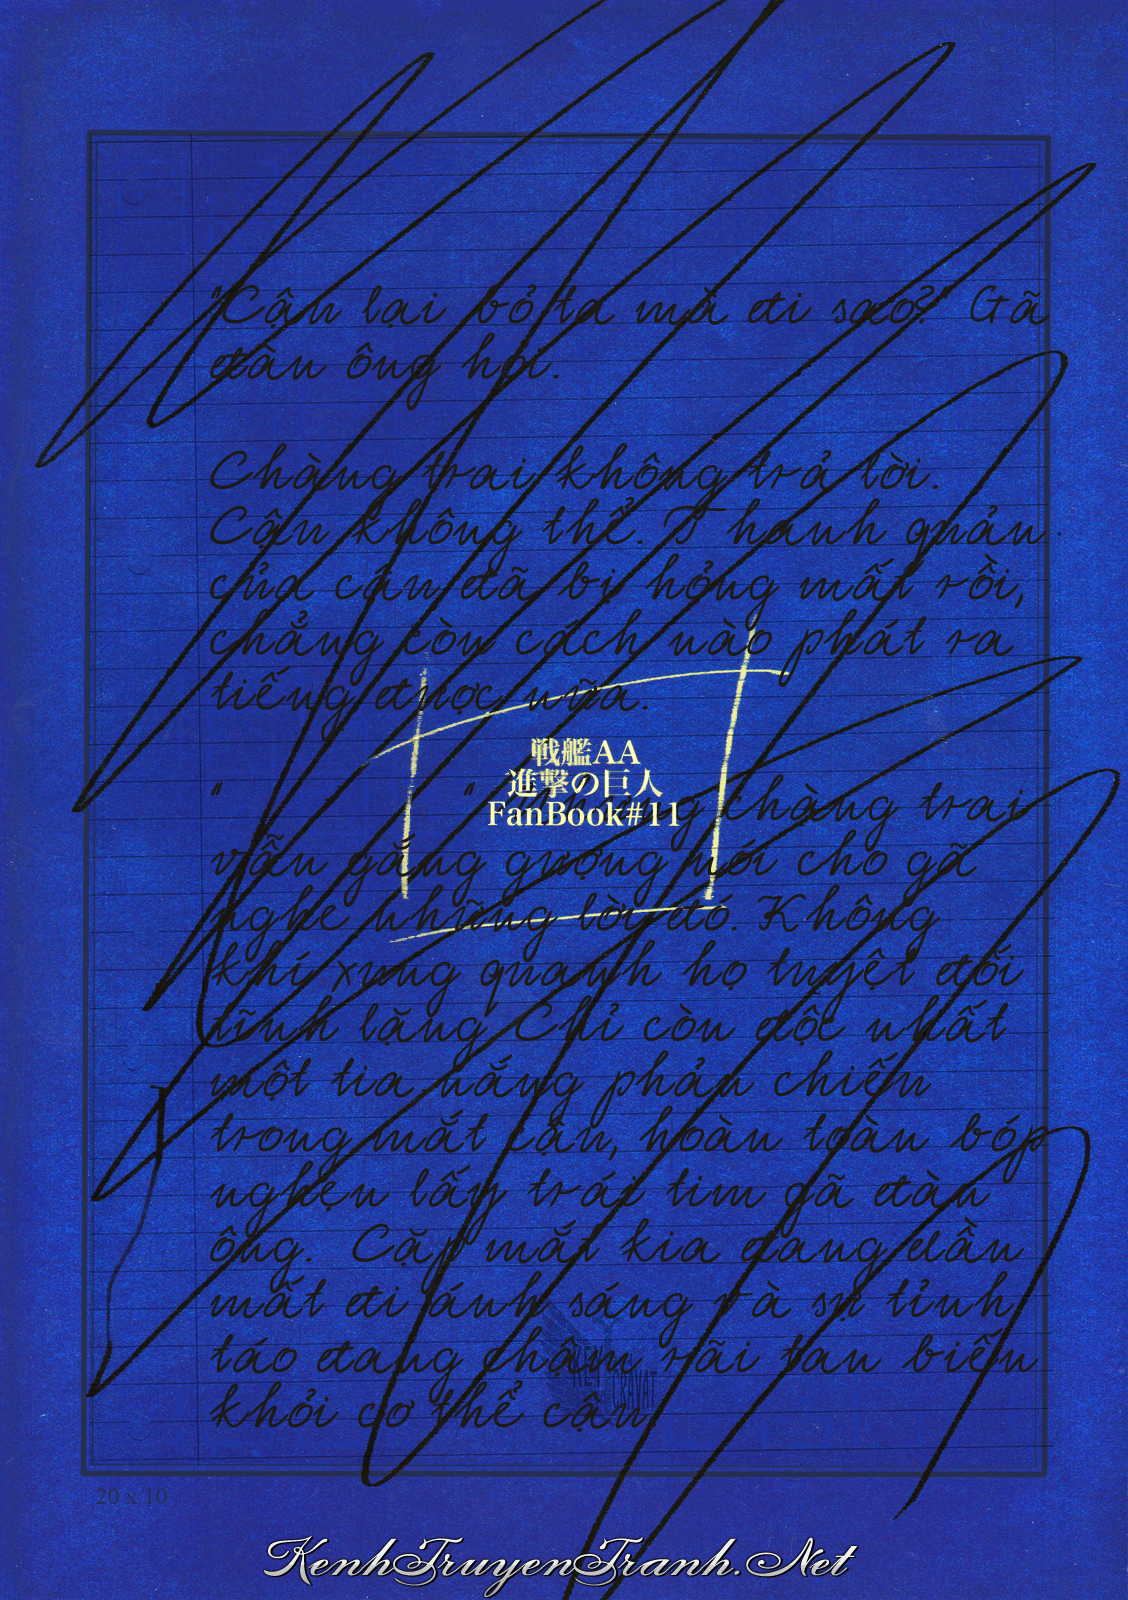 "Cậu lại bỏ ta mà đi sao?" Gã
đàn ông hỏi.
Chàng trai không trả lời.
Cậu không thể. Thanh quản
của cậu đã bị hỏng mất rồi,
chẳng còn cách nào phát ra
tiếng được nữa.
戦艦AA
進撃の巨人
FanBook#11
" " Nhưng chàng trai
vẫn gắng gượng nói cho gã
nghe những lời đó. Không
khí xung quanh họ tuyệt đối
tĩnh lặng Chỉ còn độc nhất
một tia nắng phản chiếu
trong mắt cậu, hoàn toàn bóp
nghẹn lấy trái tim gã đàn
ông. Cặp mắt kia đang dần
mất đi ánh sáng và sự tỉnh
táo đang chậm rãi tan biến
khỏi cơ thể cậu
CRAVAT
20 x 10
KenhTruyenTranh.Net